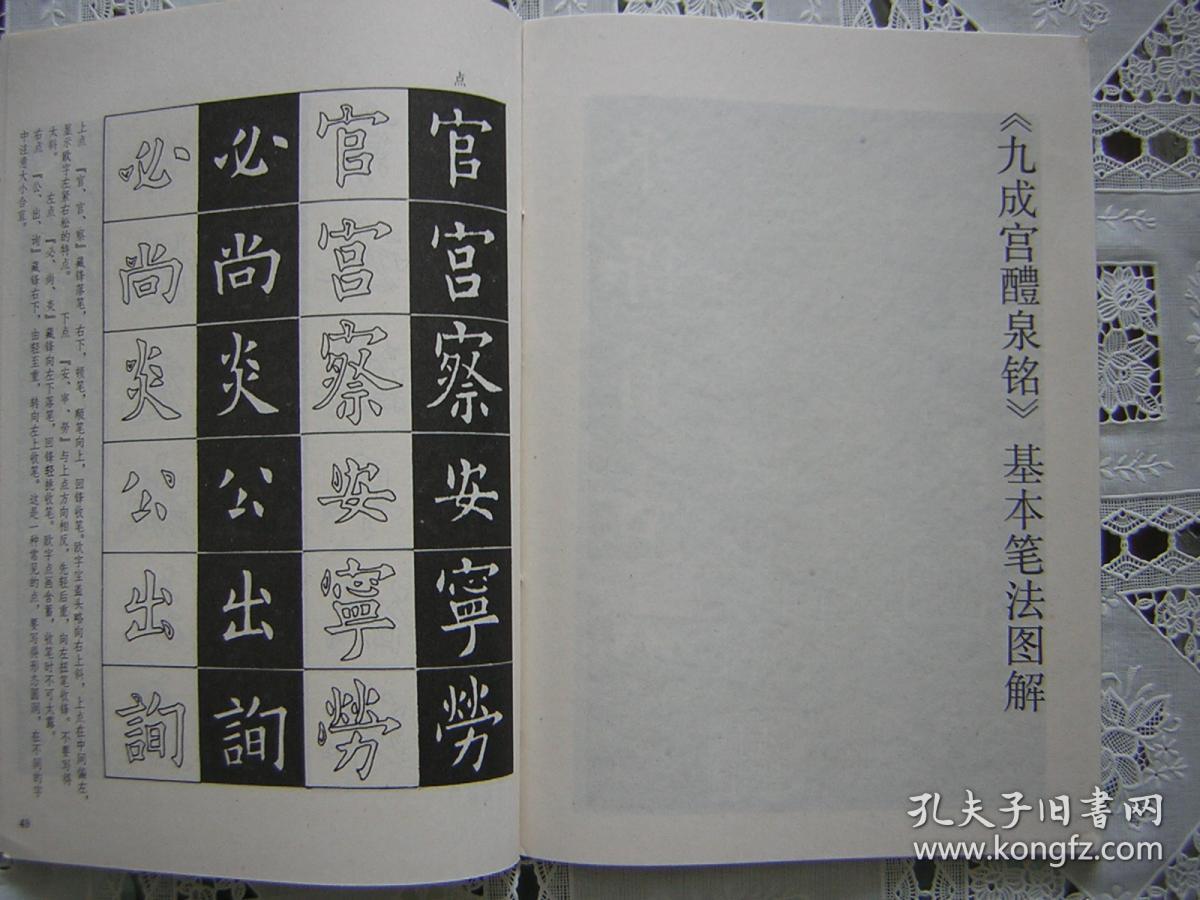 《九成宫醴泉铭》基本笔法图解
点
官宫察安寧勞
官宫察安寧勞
必尚炎公出詢
必尚炎公出詢
上点 『官、宫、察』藏锋落笔，右下，顿笔，顺笔向上，回锋收笔。欧字宝盖头略向右上斜，上点在中间偏左，
显示欧字左紧右松的特点。 下点 『安、寧、勞』与上点方向相反，先轻后重，向左扭笔收锋。不要写得
太斜。 左点 『必、尚、炎』藏锋向左下落笔，回锋轻挑收笔。欧字点画含蓄，收笔时不可太露。
右点 『公、出、询』藏锋右下，由轻至重，转向左上收笔。这是一种常见的点，要写得形态圆润，在不同的字
中注意大小合宜。
49
孔夫子旧書网
www.kongfz.com